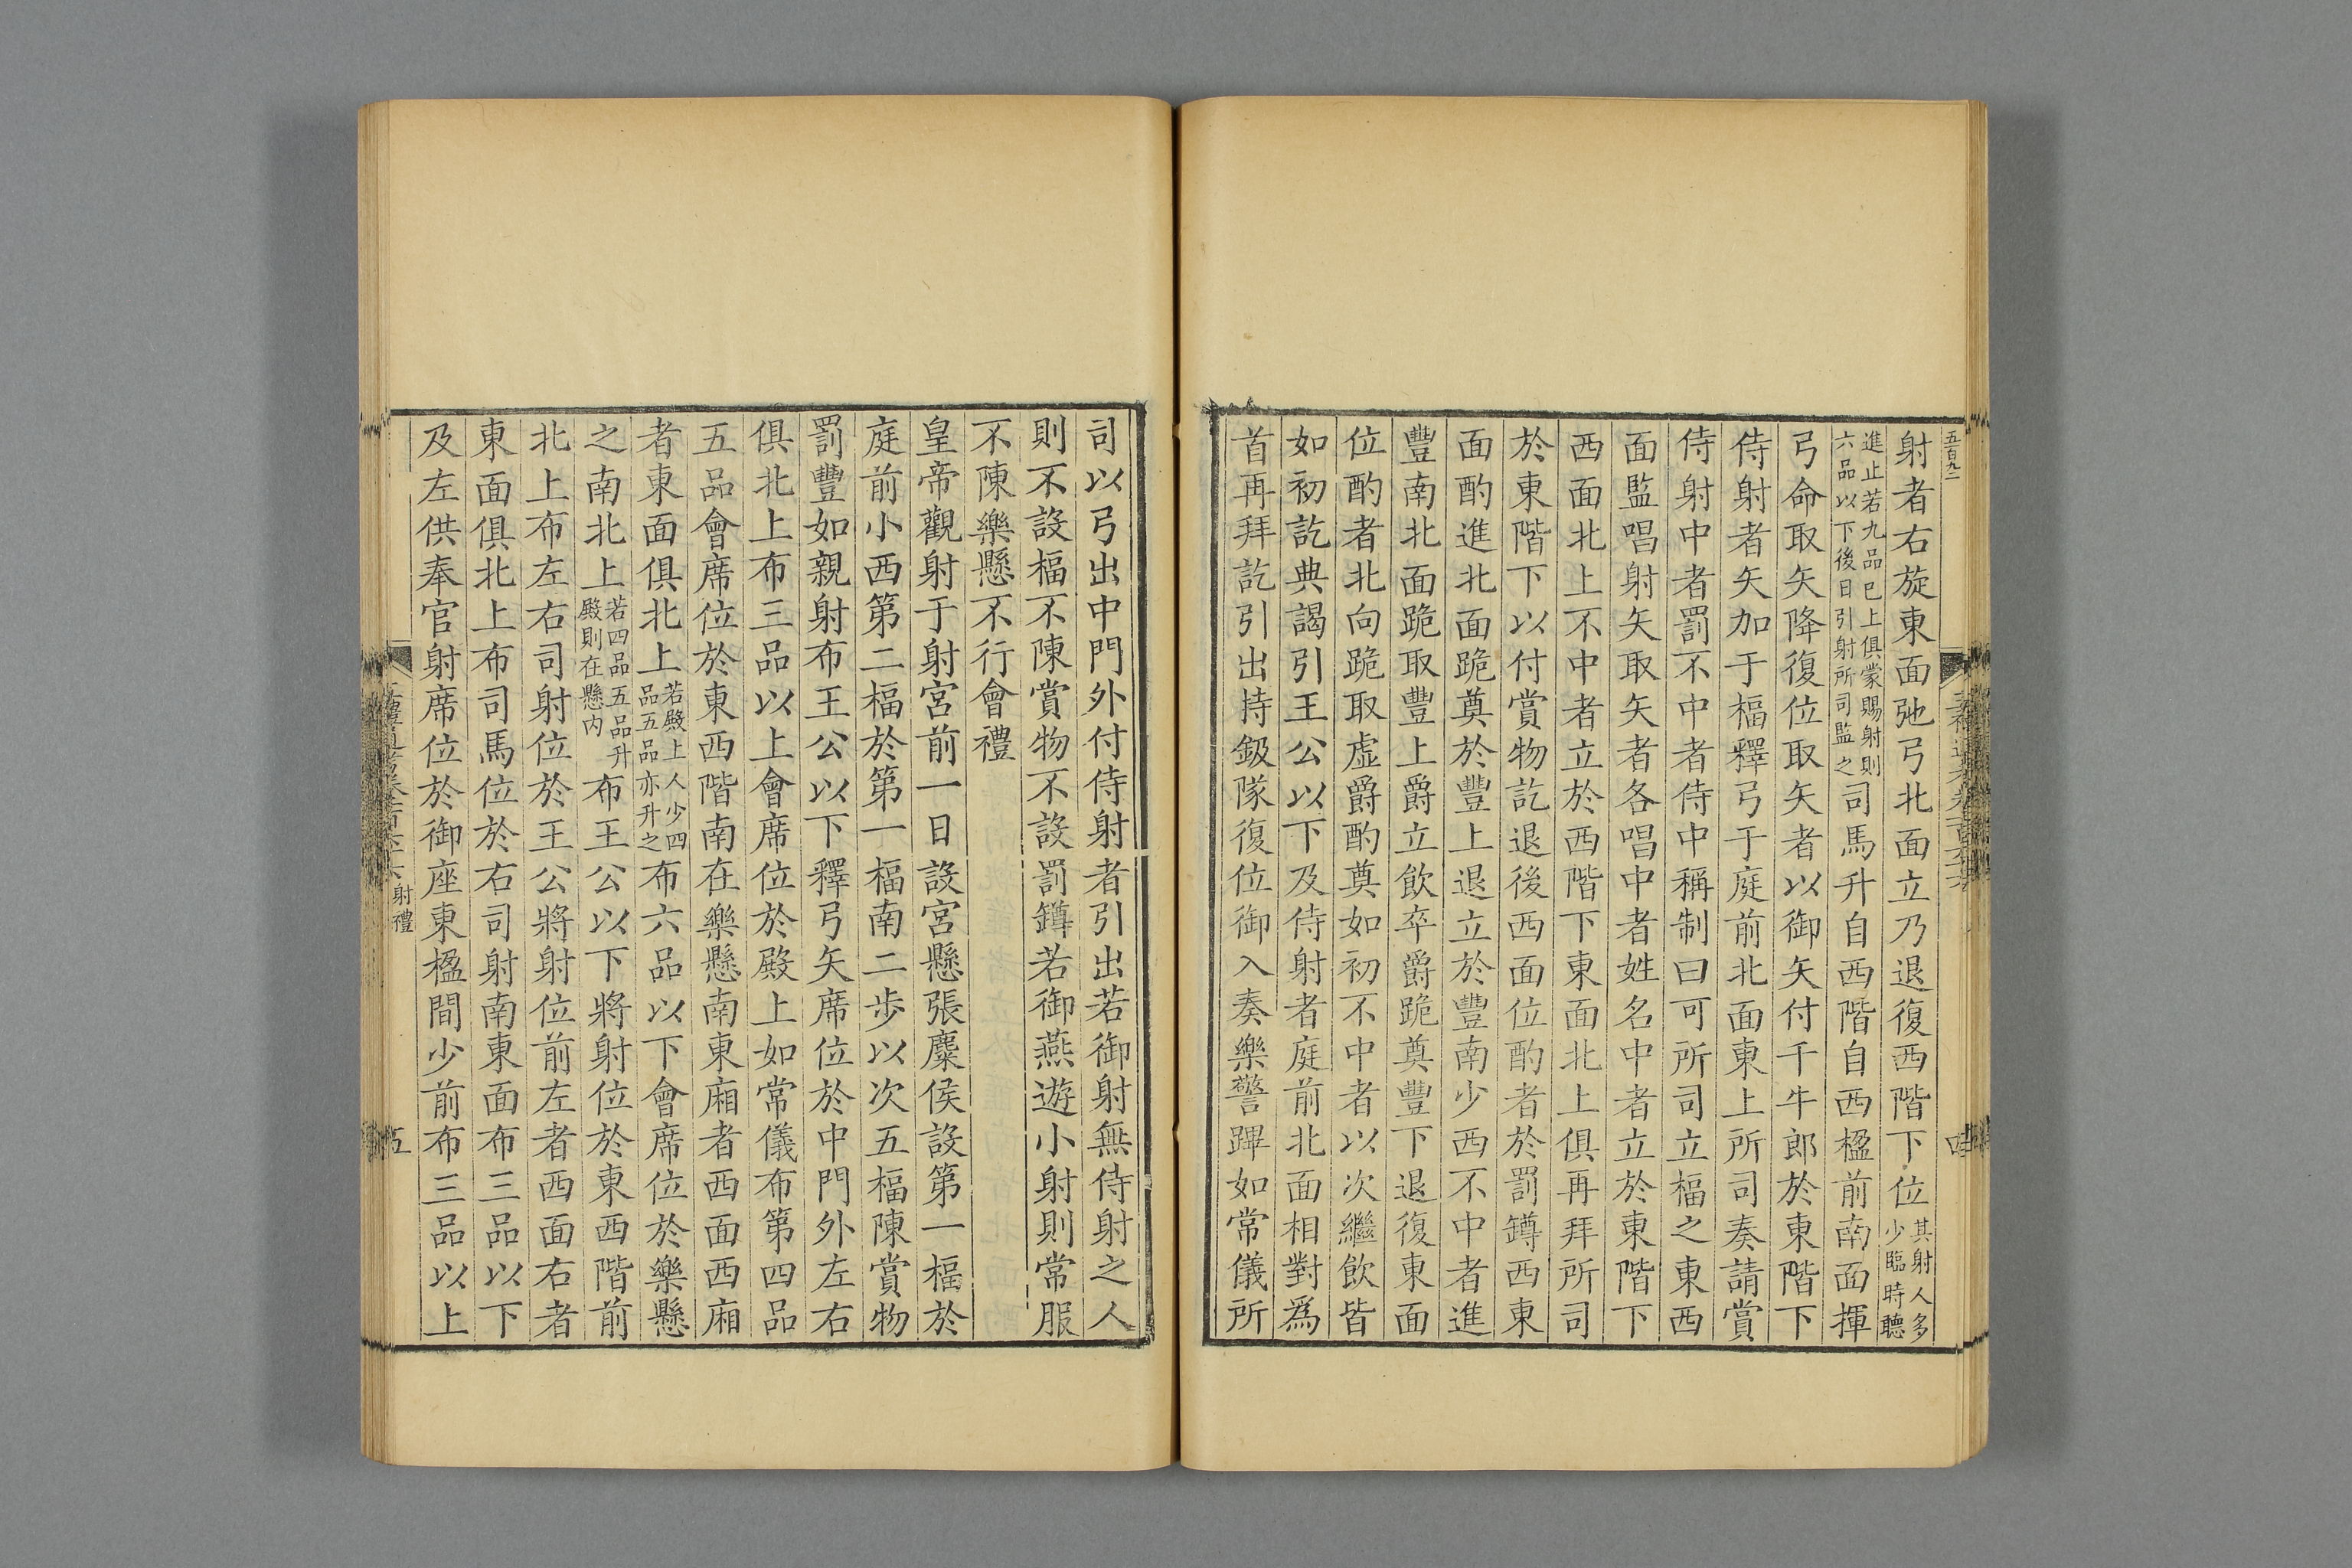 五百九二
射者右旋東面弛弓北面立乃退復西階下位其射人多少臨時聽
進止若九品已上俱蒙賜射則六品以下後日引射所司監之司馬升自西階自西楹前南面揮
弓命取矢降復位取矢者以御矢付千牛郎於東階下
侍射者矢加于楅釋弓于庭前北面東上所司奏請賞
侍射中者罰不中者侍中稱制曰可所司立楅之東西
面監唱射矢取矢者各唱中者姓名中者立於東階下
西面北上不中者立於西階下東面北上俱再拜所司
於東階下以付賞物訖退後西面位酌者於罰罇西東
面酌進北面跪奠於豐上退立於豐南少西不中者進
豐南北面跪取豐上爵立飲卒爵跪奠豐下退復東面
位酌者北向跪取虛爵酌奠如初不中者以次繼飲皆
如初訖典謁引王公以下及侍射者庭前北面相對爲
首再拜訖引出持鈒隊復位御入奏樂警蹕如常儀所
司以弓出中門外付侍射者引出若御射無侍射之人
則不設楅不陳賞物不設罰罇若御燕遊小射則常服
不陳樂懸不行會禮
皇帝觀射于射宮前一日設宮懸張麋侯設第一楅於
庭前小西第二楅於第一楅南二步以次五楅陳賞物
罰豐如親射布王公以下釋弓矢席位於中門外左右
俱北上布三品以上會席位於殿上如常儀布第四品
五品會席位於東西階南在樂懸南東廂者西面西廂
者東面俱北上若殿上人少四品五品亦升之布六品以下會席位於樂懸
之南北上若四品五品升殿則在懸内布王公以下將射位於東西階前
北上布左右司射位於王公將射位前左者西面右者
東面俱北上布司馬位於右司射南東面布三品以下
及左供奉官射席位於御座東楹間少前布三品以上
射禮
五